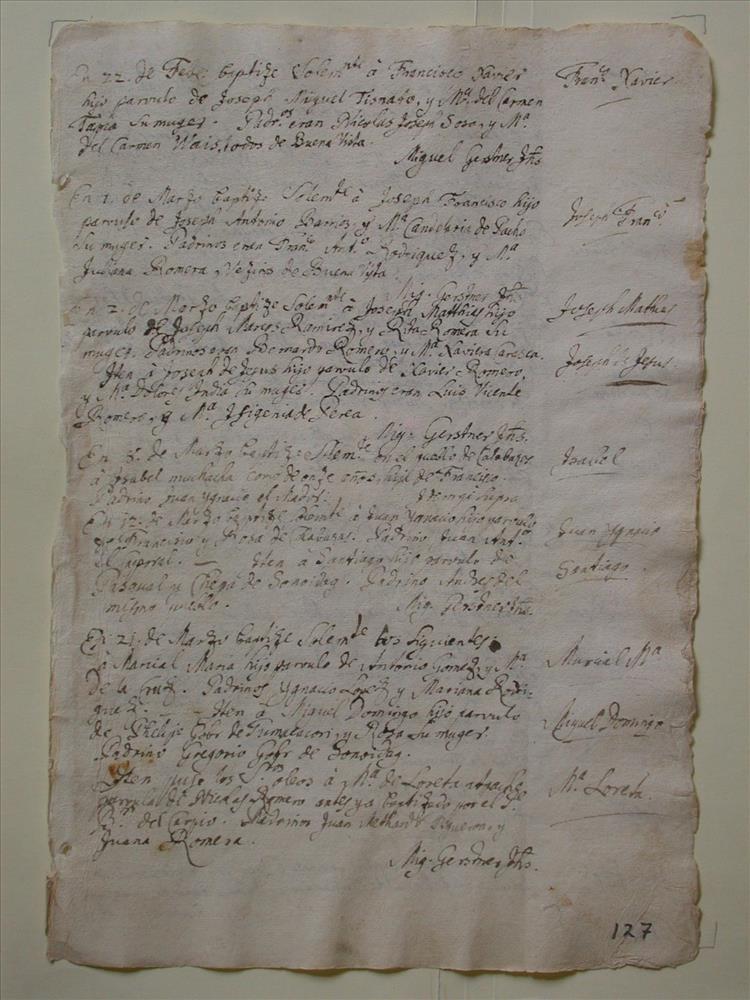 En 22. de Febr. baptize Solemte â Francisco Xavier
Franco Xavier
hijo parvulo de Joseph Miguel Tisnado, y Ma. del Carmen
Tapia Su muger. Padros eran Nicolas Joseph Sosa, y Ma.
del Carmen Wais, todos de Buena Vista.
Miguel Gerstner Jhs.
En 1. de Marzo baptize Solemte â Joseph Francisco hijo
Joseph Franco
parvulo de Joseph Antonio Barrios, y Ma Candelaria de Pacho
Su muger. Padrinos eran Franco Anto Rodriguez, y Ma.
Juliana Romera, Vezinos de Buena Vista.
Mig. Gerstner Jhs.
En 2. de Marzo baptize Solemte â Joseph Matthias hijo
Joseph Mathias
parvulo de Joseph Marcos Ramirez, y Rita Romera Su
muger. Padrinos eran Bernardo Romero, y Ma Xaviera Carasca.
Iten â Joseph de Jesus hijo parvulo de Xavier Romero,
Joseph de Jesus
y Ma Dolores India Su muger. Padrinos eran Luis Vicente
Romero, y Ma. Ifigenia de Perea.
Mig. Gerstner Jhs.
En 8. de Marzo baptize Solemte en el pueblo de Calabazas
â Ysabel muchacha como de onze años, hija de Francisco.
Isabel
Padrino Juan Ygnacio el Mador. Idem qui supra
En 12. de Marzo baptize Solemte â Juan Ygnacio hijo parvulo
Juan Ygnacio
de Francisco y Rosa de Calabazas. Padrino Juan Anto
el Caporal. — Iten â Santiago hijo parvulo de
Santiago
Pasqual y Chepa de Sonoitag. Padrino Andres del
mismo pueblo. Mig. Gerstner Jhs.
En 21. de Marzo baptize Solemte los Siguientes:
â Marcial Maria hijo parvulo de Antonio Gomez, y Ma
Marcial Ma
de la Cruz. Padrinos Ygnacio Lopez y Mariana Rodri-
guez. — Iten â Miguel Domingo hijo parvulo
Miguel Domingo
de Phelipe Gobr de Tumacacori, y Rosa Su muger.
Padrino Gregorio Gobr de Sonoitag.
Iten puse los Stos oleos â Ma. de Loreta
Ma Loreta.
parvula de Nicolas Romero antes ya baptizada por el Sr.
Br. del Carpio. Padrinos Juan y
Juana Romera.
Mig. Gerstner Jhs.
127